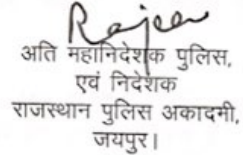 Rajeev
अति महानिदेशक पुलिस,
एवं निदेशक
राजस्थान पुलिस अकादमी,
जयपुर।